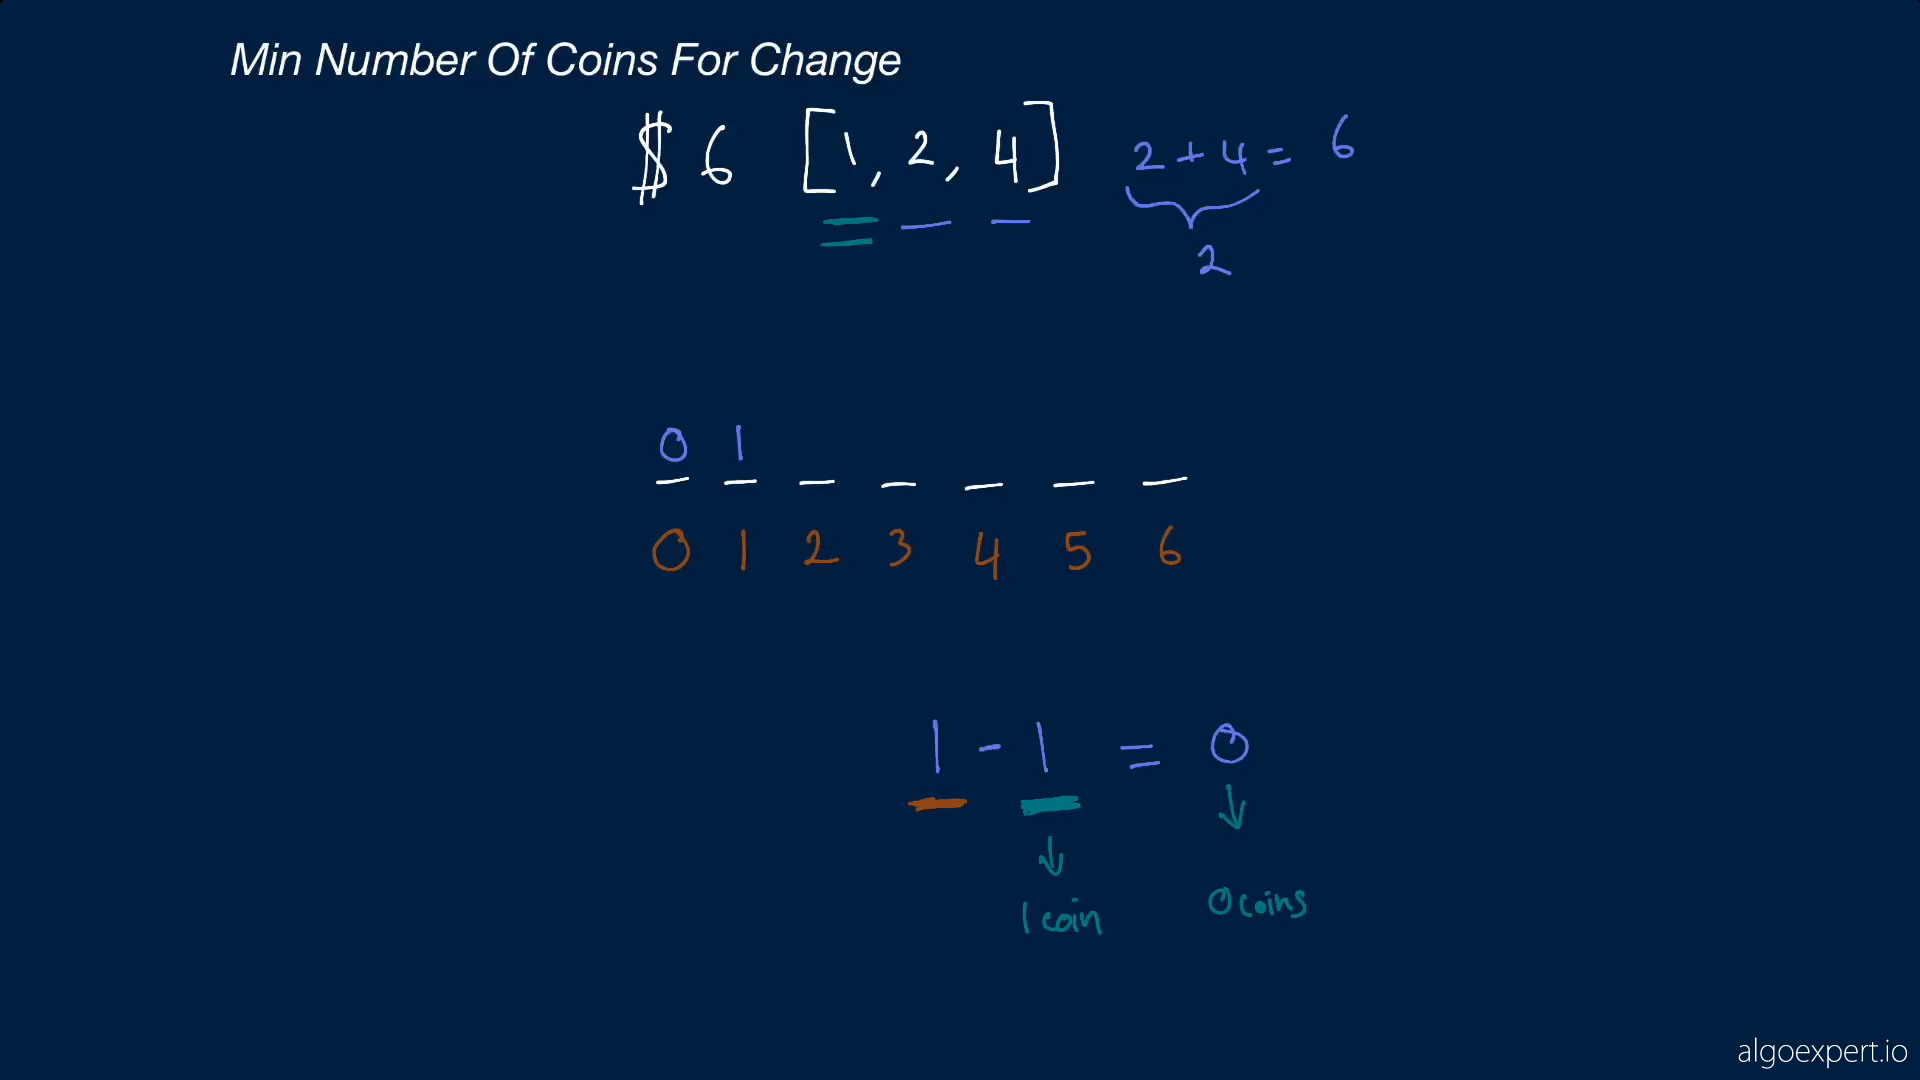 Min Number Of Coins For Change
$ 6 [1, 2, 4] 2 + 4 = 6
2
0 1
0 1 2 3 4 5 6
1 - 1 = 0
1 coin 0 coins
algoexpert.io